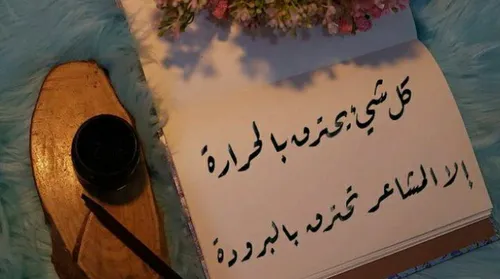 كل شيء يحترق بالحرارة
إلا المشاعر تحترق بالبرودة